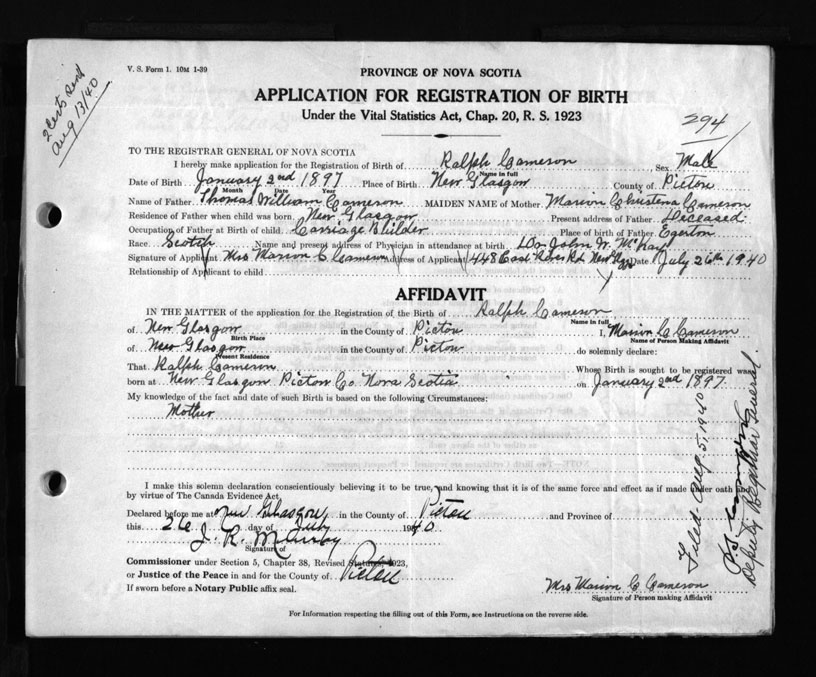 V. S. Form 1. 10M 1-39
2 Certs Send
Aug 13/40
PROVINCE OF NOVA SCOTIA
APPLICATION FOR REGISTRATION OF BIRTH
Under the Vital Statistics Act, Chap. 20, R. S. 1923
294
TO THE REGISTRAR GENERAL OF NOVA SCOTIA
I hereby make application for the Registration of Birth of Ralph Cameron Sex Male
Name in full
Date of Birth January 2nd 1897 Place of Birth New Glasgow County of Picton
Month Date Year
Name of Father Thomas William Cameron MAIDEN NAME of Mother Marion Christena Cameron
Residence of Father when child was born New Glasgow Present address of Father Deceased
Occupation of Father at Birth of child Carriage Builder Place of birth of Father Egerton
Race Scotch Name and present address of Physician in attendance at birth Dr John W. McKay
Signature of Applicant Mrs Marion C Cameron Address of Applicant 448 East River Rd New Date July 26th 1940
Relationship of Applicant to child
AFFIDAVIT
IN THE MATTER of the application for the Registration of the Birth of Ralph Cameron
Name in full
of New Glasgow in the County of Picton I, Marion C Cameron
Birth Place Name of Person Making Affidavit
of New Glasgow in the County of Picton do solemnly declare:
Present Residence
That Ralph Cameron Whose Birth is sought to be registered was
born at New Glasgow Picton Co. Nova Scotia on January 2nd 1897
My knowledge of the fact and date of such Birth is based on the following Circumstances:
Mother
I make this solemn declaration conscientiously believing it to be true, and knowing that it is of the same force and effect as if made under oath and
by virtue of The Canada Evidence Act.
Declared before me at New Glasgow in the County of Pictou and Province of
this 26 day of July 1940
J. R.
Signature of
Commissioner under Section 5, Chapter 38, Revised Statutes, 1923,
or Justice of the Peace in and for the County of Pictou
If sworn before a Notary Public affix seal.
Mrs Marion C Cameron
Signature of Person making Affidavit
For Information respecting the filling out of this Form, see Instructions on the reverse side.
Filed Aug. 5, 1940
Deputy Registrar General.